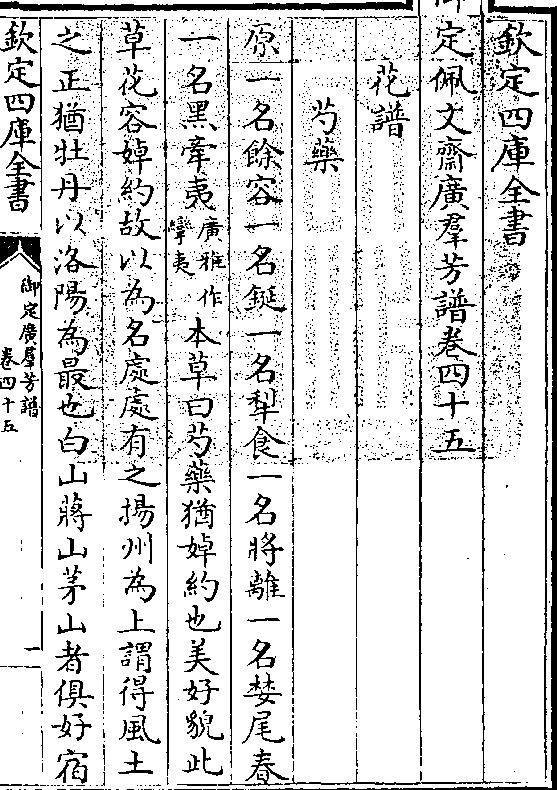 欽定四庫全書
御定佩文齋廣羣芳譜卷四十五
花譜
芍藥
原一名餘容一名鋋一名犁食一名將離一名婪尾春
一名黑牽夷廣雅作攣夷本草曰芍藥猶婥約也美好貌此
草花容婥約故以為名處處有之揚州為上謂得風土
之正猶牡丹以洛陽為最也白山蔣山茅山者俱好宿
欽定四庫全書
御定廣羣芳譜
卷四十五
一